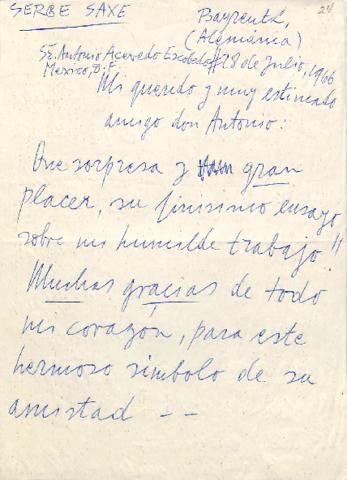 24
SERGE SAXE
Bayreuth,
(Alemánia)
28 de Julio, 1966
Sr. Antonio Acevedo Escobedo
Mexico, D.F.
Mi querido y muy estimado
amigo don Antonio:
Que sorpresa y gran
placer, su finissimo ensayo
sobre mi humilde trabajo!!
Muchas gracias de todo
mi corazón, para este
hermoso símbolo de su
amistad --